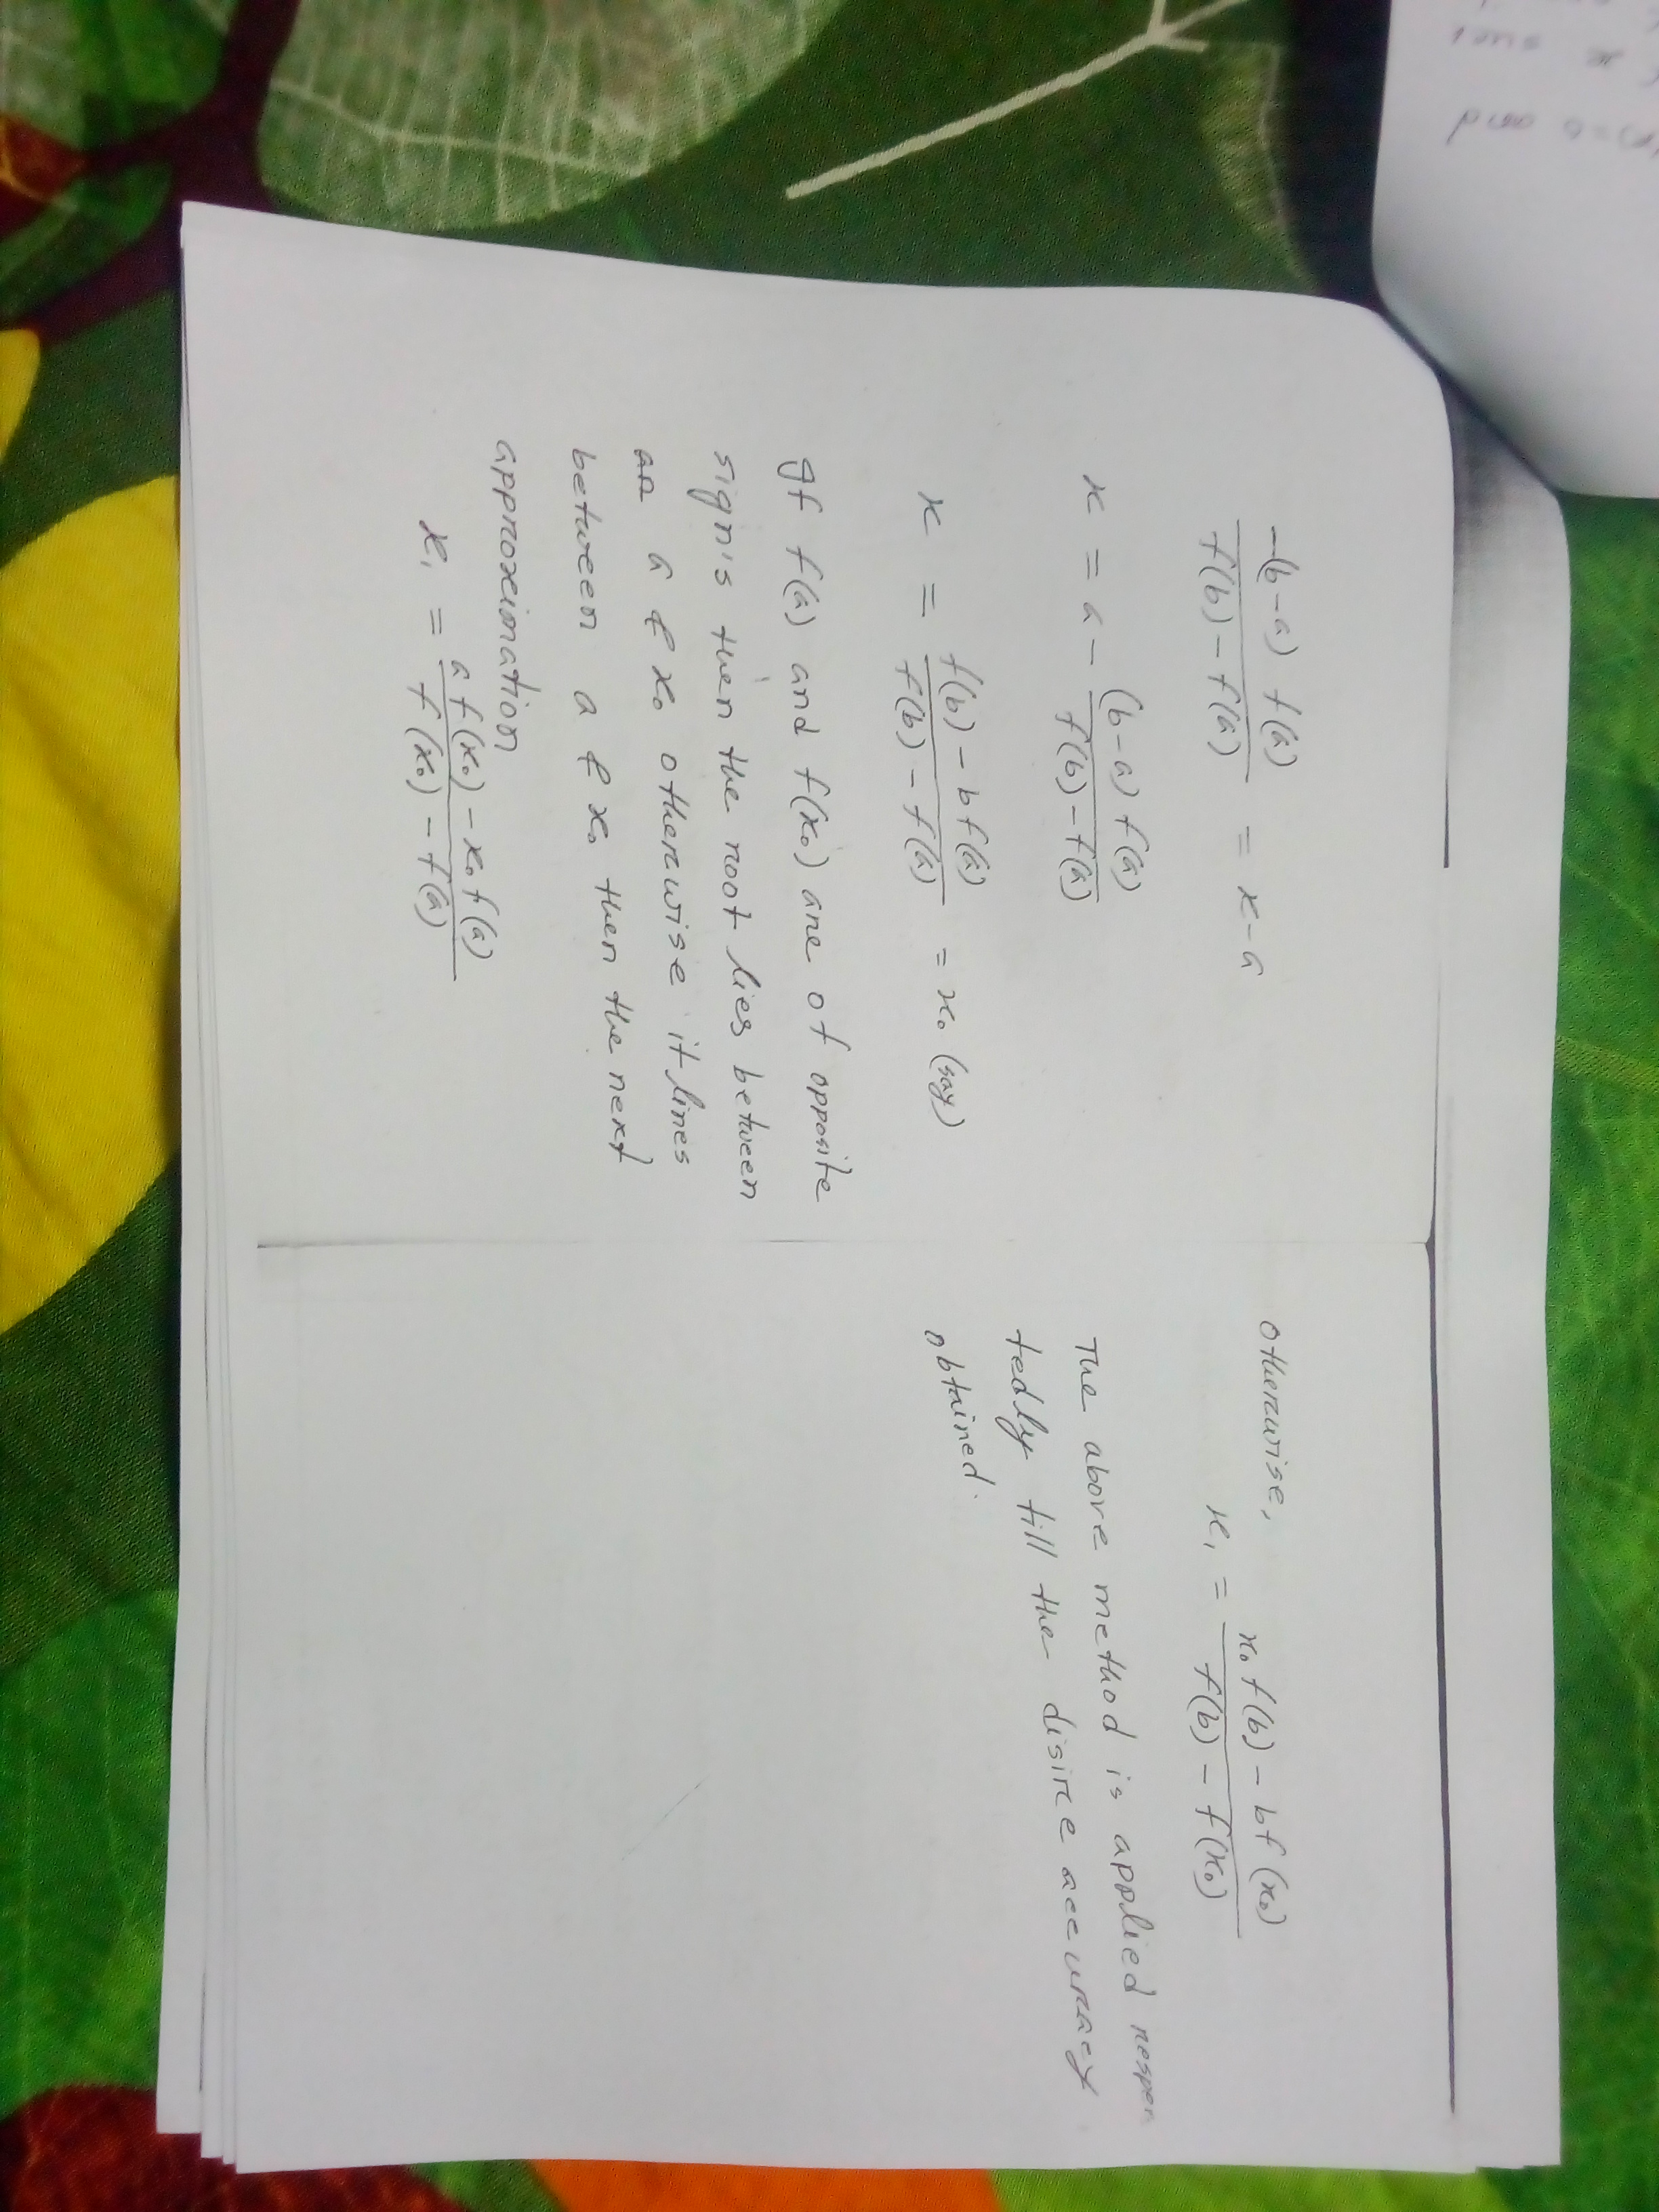 -(b-a) f(a) / f(b) - f(a) = x - a
x = a - (b-a) f(a) / f(b) - f(a)
x = f(b) - b f(a) / f(b) - f(a) = x₀ (say)
If f(a) and f(x₀) are of opposite
sign's then the root lies between
an a & x₀ otherwise it lines
between a & x₀ then the next
approximation
x₁ = a f(x₀) - x₀ f(a) / f(x₀) - f(a)
otherwise,
x₁ = x₀ f(b) - b f(x₀) / f(b) - f(x₀)
The above method is applied resper
tedly till the disire accuracy
obtained.